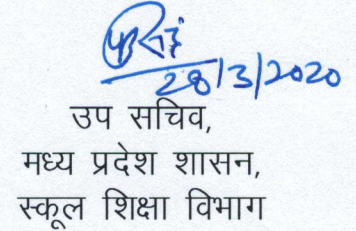 28/3/2020
उप सचिव,
मध्य प्रदेश शासन,
स्कूल शिक्षा विभाग